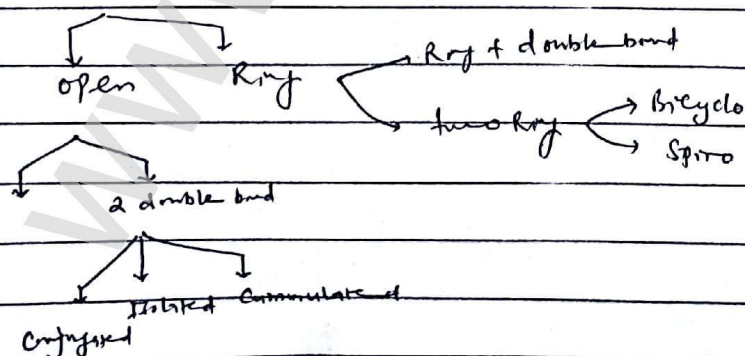 Ring + double bond
open Ring
two Ring Bicyclo
Spiro
2 double bond
Conjugated Isolated Cummulated